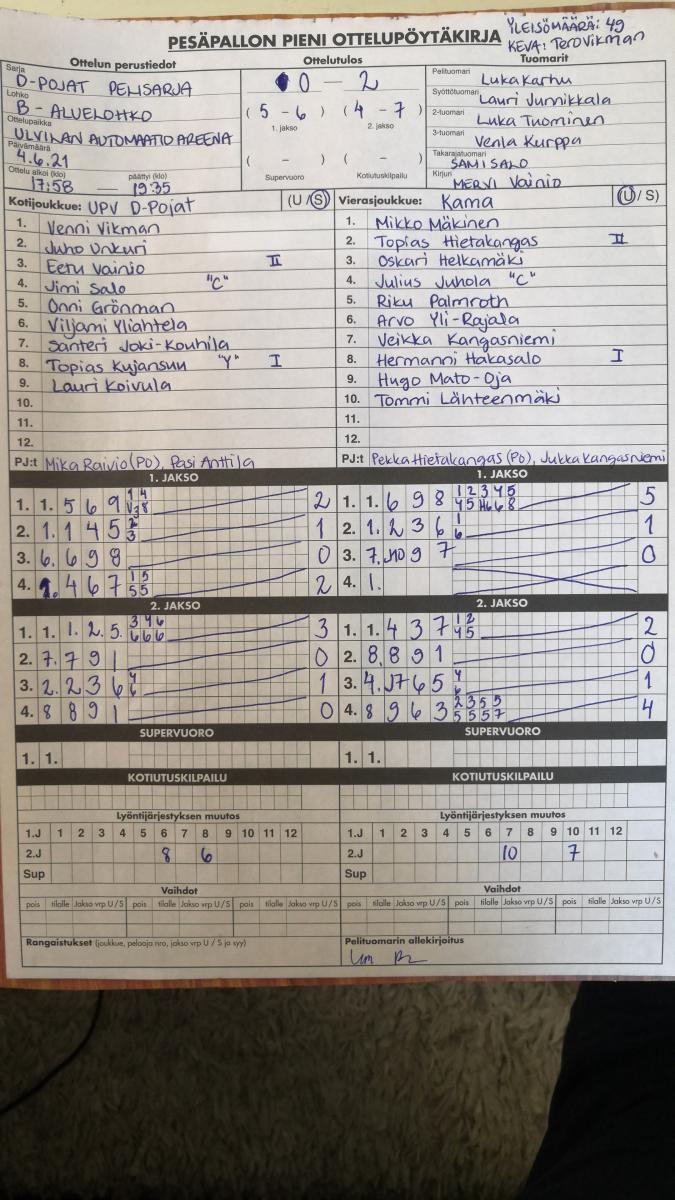 PESÄPALLON PIENI OTTELUPÖYTÄKIRJA
YLEISÖMÄÄRÄ: 49
KEVA: Tero Vikman
Ottelun perustiedot
Ottelutulos
Tuomarit
Sarja
D-POJAT PELISARJA
Lohko
B-ALUELOHKO
Ottelupaikka
ULVILAN AUTOMAATIO AREENA
Päivämäärä
4.6.21
Ottelu alkoi (klo) päättyi (klo)
17:58 — 19:35
0 — 2
(5 - 6) (4 - 7)
1. jakso 2. jakso
( - ) ( - )
Supervuoro Kotiutuskilpailu
Pelituomari Luka Karhu
Syöttötuomari Lauri Junnikkala
2-tuomari Luka Tuominen
3-tuomari Venla Kurppa
Takarajatuomari SAMI SALO
Kirjuri MERVI Vainio
Kotijoukkue: UPV D-Pojat (U / S)
1. Venni Vikman
2. Juho Unkuri
3. Eetu Vainio II
4. Jimi Salo "C"
5. Onni Grönman
6. Viljami Yliahtela
7. Santeri Joki-Kouhila
8. Topias Kujansuu "Y" I
9. Lauri Koivula
10.
11.
12.
PJ:t Mika Raivio (PO), Pasi Anttila
Vierasjoukkue: Kama (U / S)
1. Mikko Mäkinen
2. Topias Hietakangas II
3. Oskari Helkamäki
4. Julius Juhola "C"
5. Riku Palmroth
6. Arvo Yli-Rajala
7. Veikka Kangasniemi
8. Hermanni Hakasalo I
9. Hugo Mato-Oja
10. Tommi Lähteenmäki
11.
12.
PJ:t Pekka Hietakangas (PO), Jukka Kangasniemi
1. JAKSO
1. 1. 5 6 9 2
2. 1. 1 4 5 2 3 1
3. 6. 6 9 8 0
4. 4 6 7 1 5 5 5 2
2. JAKSO
1. 1. 1. 2. 5. 3 4 6 6 6 6 3
2. 7. 7 9 1 0
3. 2. 2 3 6 4 6 1
4. 8 8 9 1 0
SUPERVUORO
1. 1.
KOTIUTUSKILPAILU
1. JAKSO
1. 1. 6 9 8 1 2 3 4 5 5
2. 1. 2 3 6 1 6 1
3. 7. 9 7 0
4. 1.
2. JAKSO
1. 1. 4 3 7 1 2 4 5 2
2. 8. 8 9 1 0
3. 4. 7 6 5 4 6 1
4. 8 9 6 3 2 3 5 5 5 5 5 7 4
SUPERVUORO
1. 1.
KOTIUTUSKILPAILU
Lyöntijärjestyksen muutos
1.J 1 2 3 4 5 6 7 8 9 10 11 12
2.J 8 6
Sup
Vaihdot
pois tilalle Jakso vrp U / S pois tilalle Jakso vrp U / S pois tilalle Jakso vrp U / S
Rangaistukset (joukkue, pelaaja nro, jakso vrp U / S ja syy)
Lyöntijärjestyksen muutos
1.J 1 2 3 4 5 6 7 8 9 10 11 12
2.J 10 7
Sup
Vaihdot
pois tilalle Jakso vrp U / S pois tilalle Jakso vrp U / S pois tilalle Jakso vrp U / S
Pelituomarin allekirjoitus